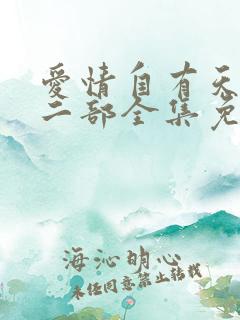 爱情自有天
二部全集免
海沁明心
未经同意禁止转载